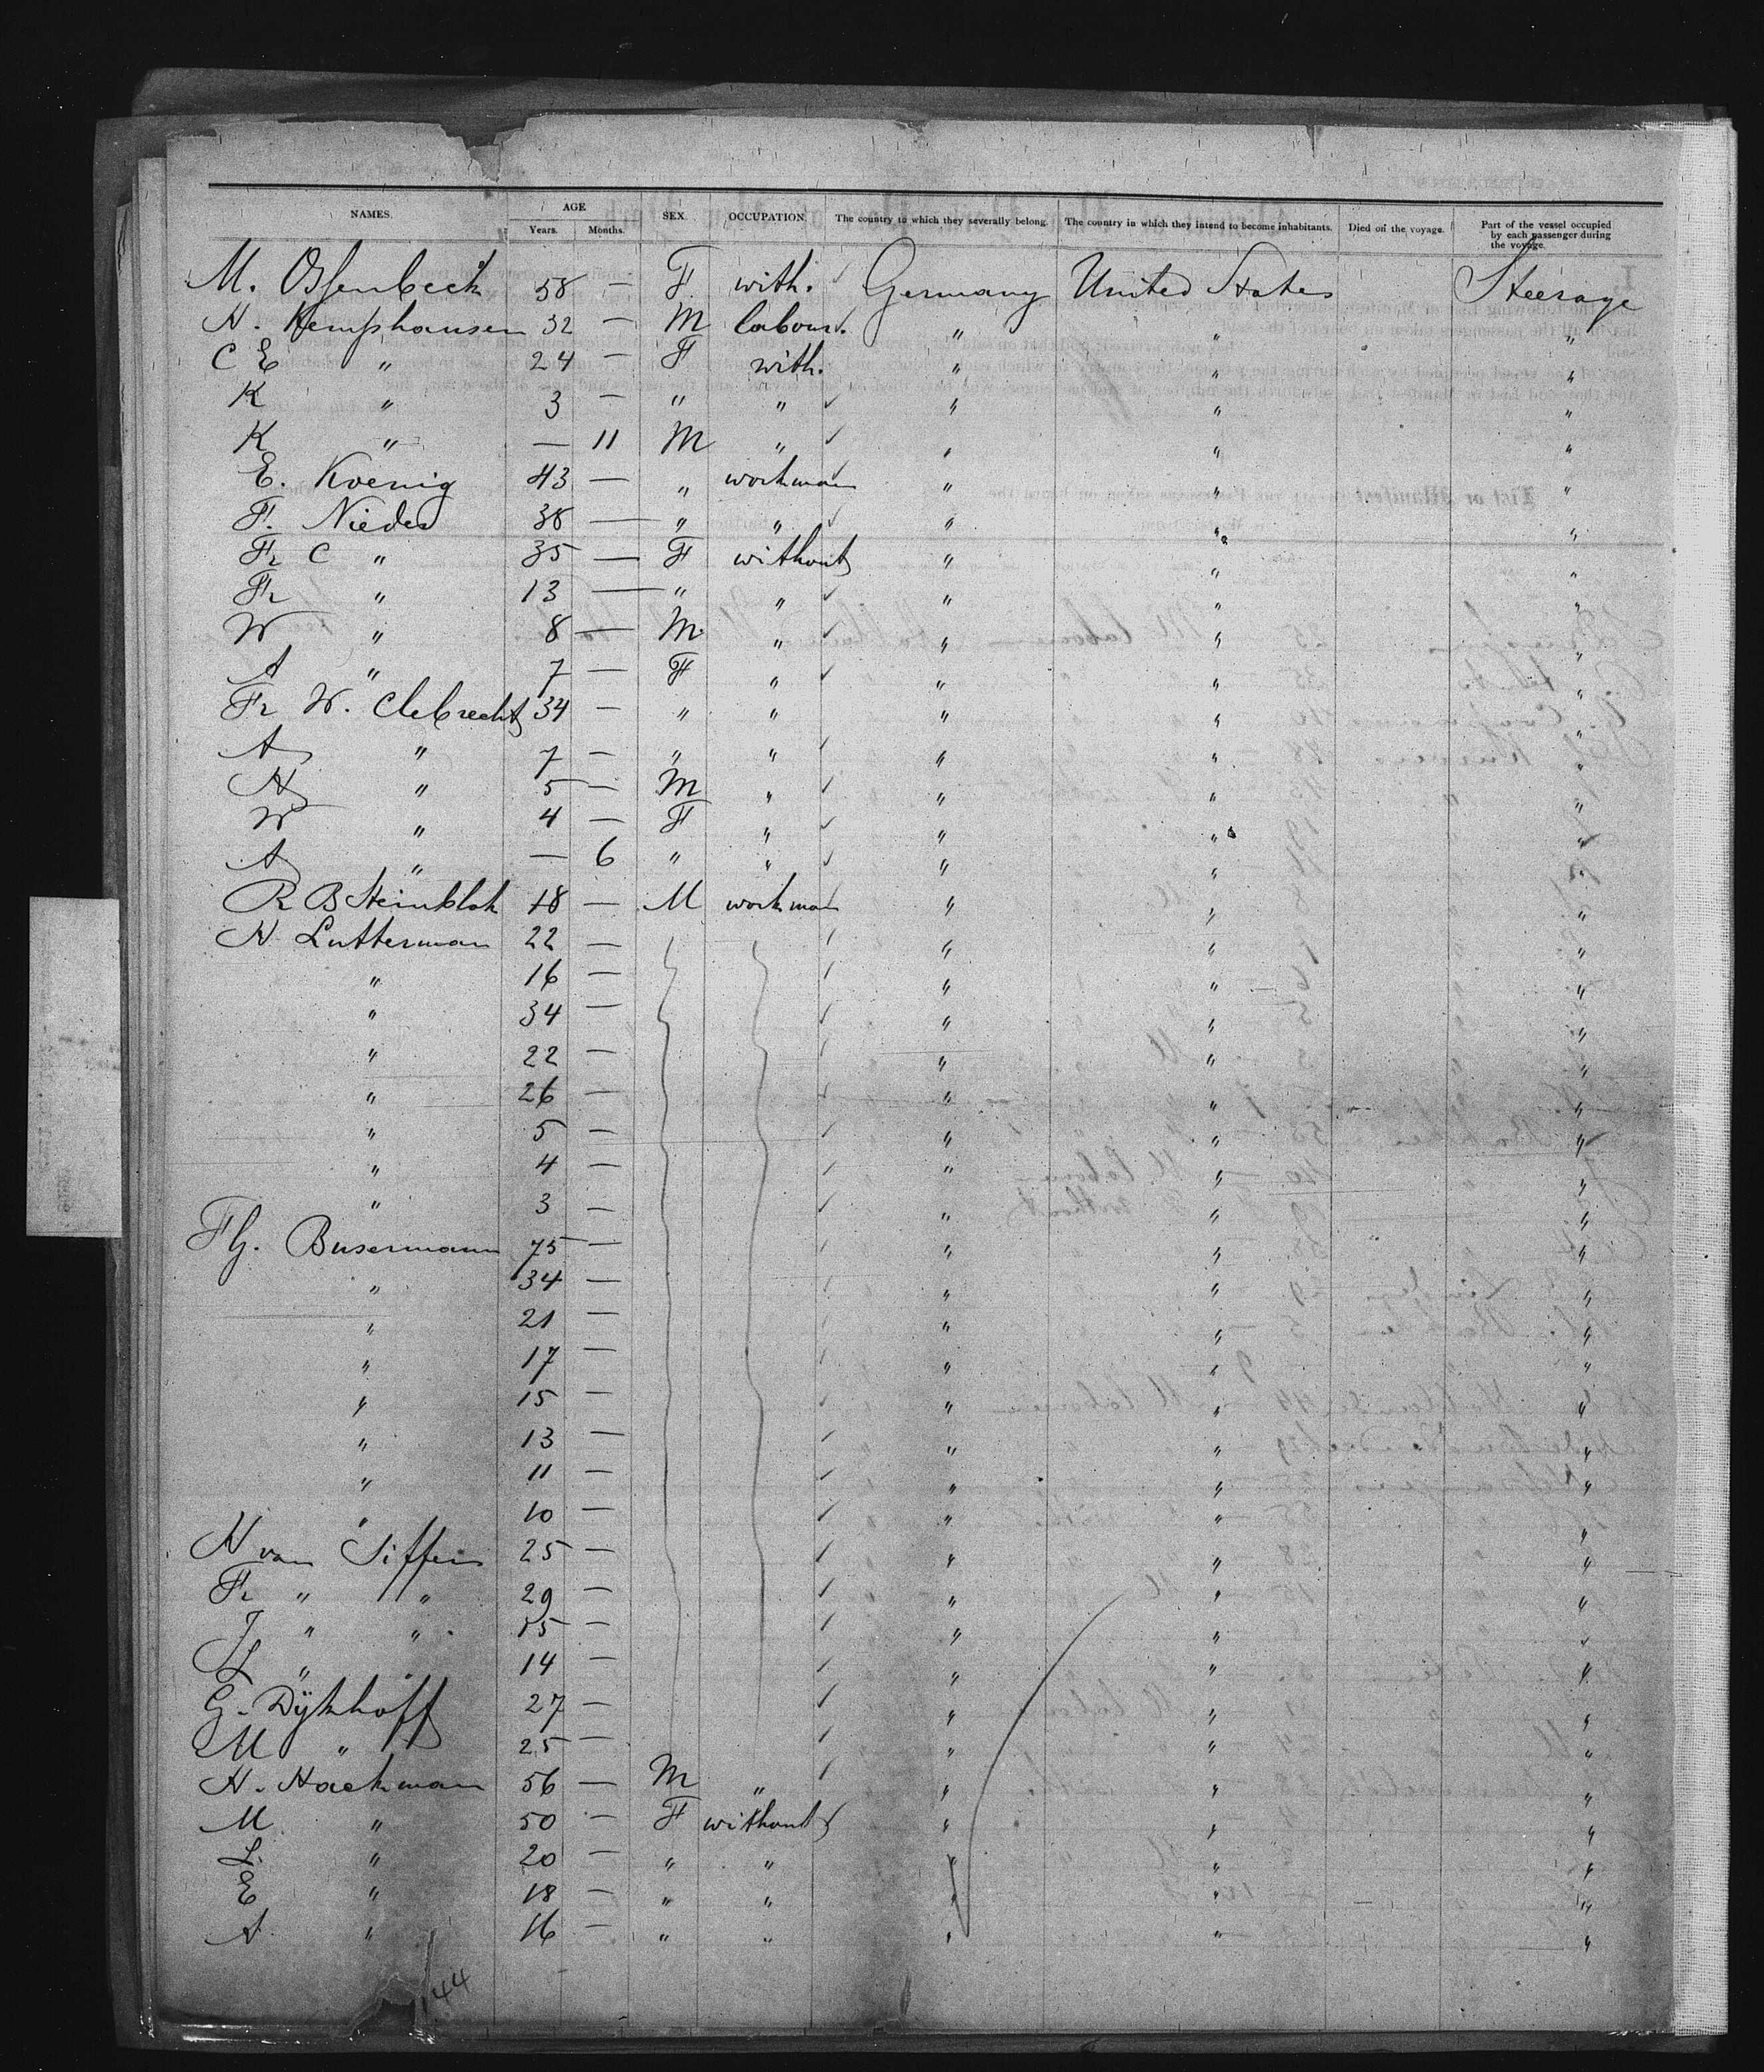 NAMES. AGE Years. Months. SEX. OCCUPATION. The country to which they severally belong. The country in which they intend to become inhabitants. Died on the voyage. Part of the vessel occupied by each passenger during the voyage.
M. Ossenbeck 58 — F. with. Germany United States Steerage
H. Kemphausen 32 — M labour. " " "
C E " 24 — F with. " " "
K " 3 — " " " " "
K " — 11 M " " " "
E. Koenig 43 — " workman " " "
F. Nieder 38 — " " " " "
Fr C " 35 — F without " " "
Fr " 13 — " " " " "
W " 8 — M. " " " "
A " 7 — F " " " "
Fr W. Clebrecht 34 — " " " " "
A " 7 — " " " " "
H " 5 — M " " " "
W " 4 — F " " " "
A " — 6 " " " " "
R B Steinblok 18 — M workman " " "
H Lutterman 22 — " " "
" 16 — " " "
" 34 — " " "
" 22 — " " "
" 26 — " " "
" 5 — " " "
" 4 — " " "
" 3 — " " "
Busermann 75 — " " "
" 34 — " " "
" 21 — " " "
" 17 — " " "
" 15 — " " "
" 13 — " " "
" 11 — " " "
" 10 — " " "
H van Siffen 25 — " " "
Fr " " 29 — " " "
J " " 15 — " " "
" 14 — " " "
G. Dÿkhoff 27 — " " "
M " 25 — " " "
H. Hackman 56 — M " " " "
M " 50 — F without " " "
L. " 20 — " " " " "
E " 18 — " " " " "
A " 16 — " " " " "
144